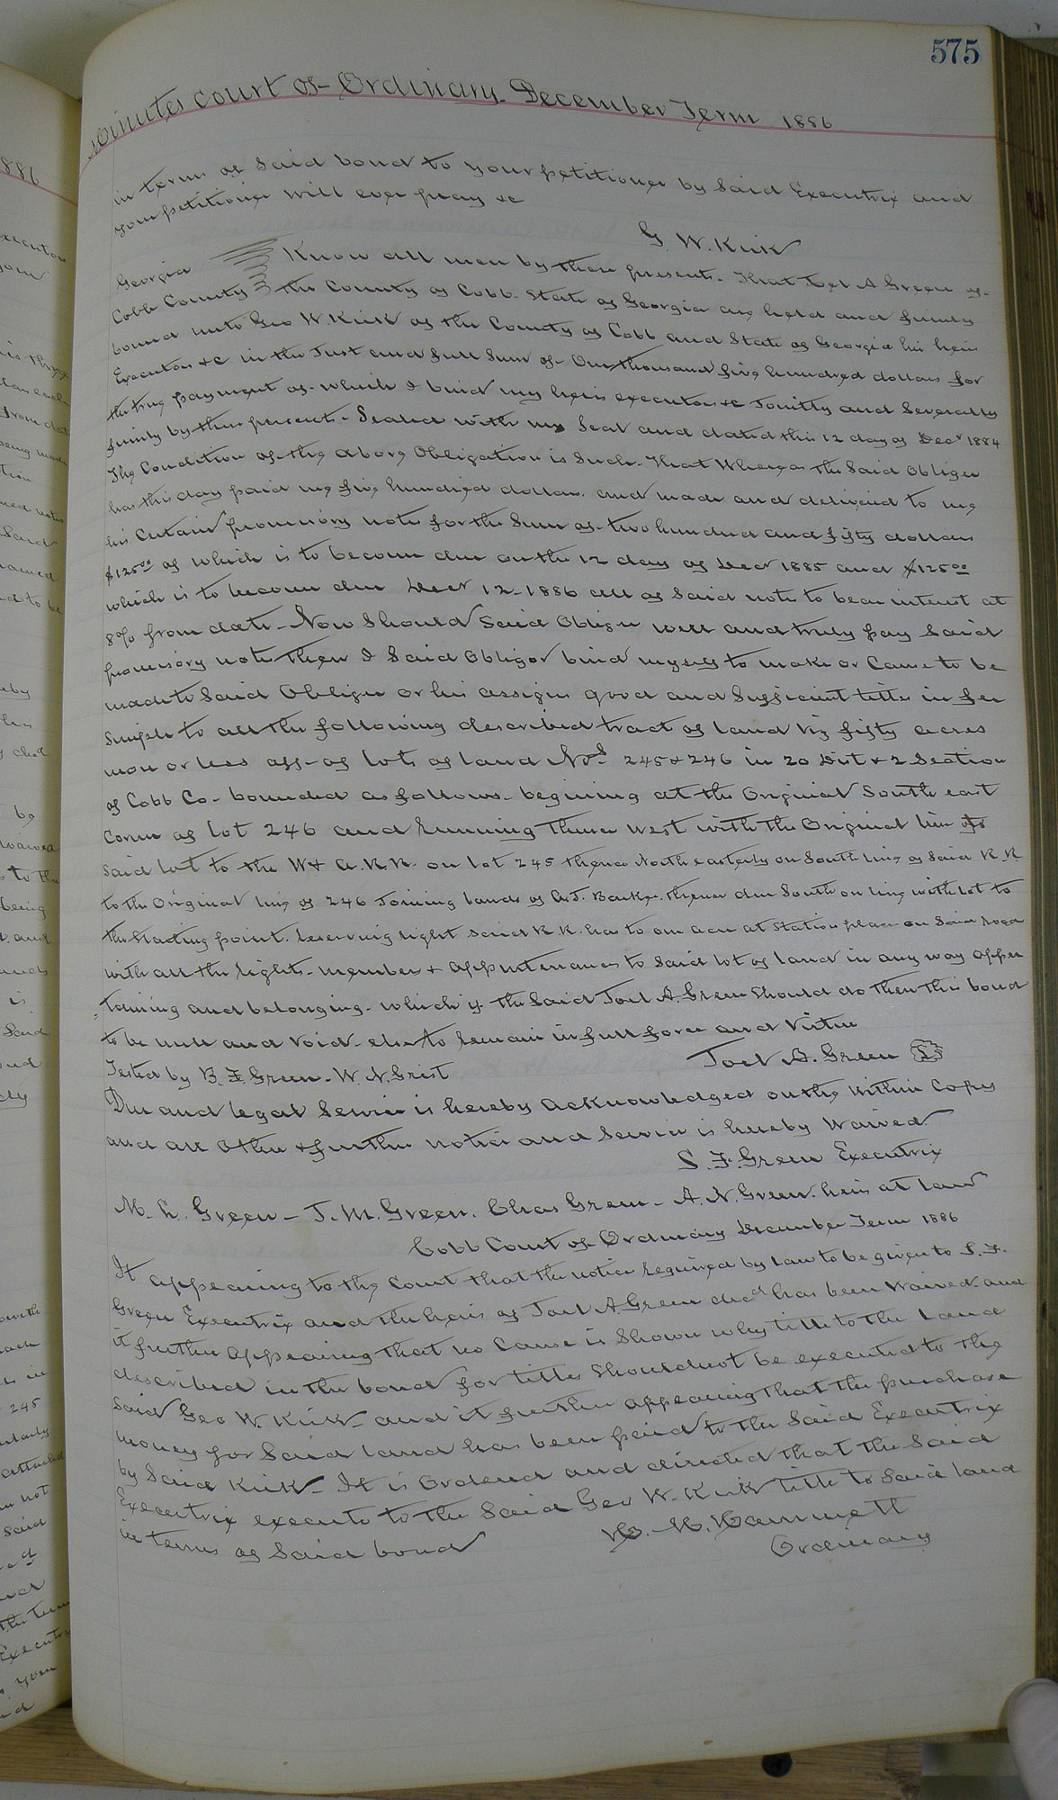 575
Minutes Court of Ordinary December Term 1886
in terms of Said bond to your petitioner by Said Executrix and
your petitioner will ever pray &c
G W. Kirk
Georgia Know all men by these presents. That Joel A Green of
Cobb County the County of Cobb State of Georgia am held and firmly
bound unto Geo W. Kirk of the County of Cobb and State of Georgia his heirs
Executors &c in the Just and full Sum of One thousand five hundred dollars for
the true payment of which I bind my heirs executors &c Jointly and Severally
firmly by these presents. Sealed with my Seal and dated this 12 day of Decr 1884
The Condition of the above Obligation is Such. That Whereas the Said Obligee
has this day paid me five hundred dollars. and made and delivered to me
his Certain promisory notes for the Sum of two hundred and fifty dollars
$125.00 of which is to become due on the 12 day of Decr 1885 and $125.00
which is to become due Decr 12-1886 all of Said notes to bear interest at
8% from date - Now Should Said Obligee well and truly pay Said
promisory notes then I Said Obligor bind myself to make or Cause to be
made to Said Obligee or his assigns good and Sufficient titles in fee
Simple to all the following described tract of land viz fifty acres
more or less off of lots of land Nos 245 & 246 in 20 Dist & 2 Section
of Cobb Co- bounded as follows- begining at the Original South east
Corner of lot 246 and running thence West with the Original line of
Said lot to the W & A. R.R. on lot 245 thence North easterly on South line of Said R R
to the Original line of 246 Joining lands of A.J. thence due South on line with lot to
the Starting point. reserving right Said R R. has to one acre at Station place on Said road
with all the rights. members & appurtenances to Said lot of land in any way apper
=taining and belonging. which if the Said Joel A. Green Should do then this bond
to be null and void- else to remain in full force and virtue
Tested by B. F. Green- W. N. Grist Joel A. Green LS
Due and legal Service is hereby acknowledged on the within Copy
and all Other & further notice and Service is hereby Waived
S. F. Green Executrix
M. L. Green- J. M. Green. Chas Green- A. N. Green. heirs at law
Cobb Court of Ordinary December Term 1886
It appearing to the Court that the notice required by law to be given to S. F.
Green Executrix and the heirs of Joel A. Green decd has been Waived. and
it further appearing that no Cause is Shown why title to the Land
described in the bond for titles Should not be executed to the
Said Geo W. Kirk- and it further appearing that the purchase
money for Said land has been paid to the Said Executrix
by Said Kirk- It is Ordered and directed that the Said
Executrix execute to the Said Geo W. Kirk title to Said land
in terms of Said bond H. M. Hammett
Ordinary